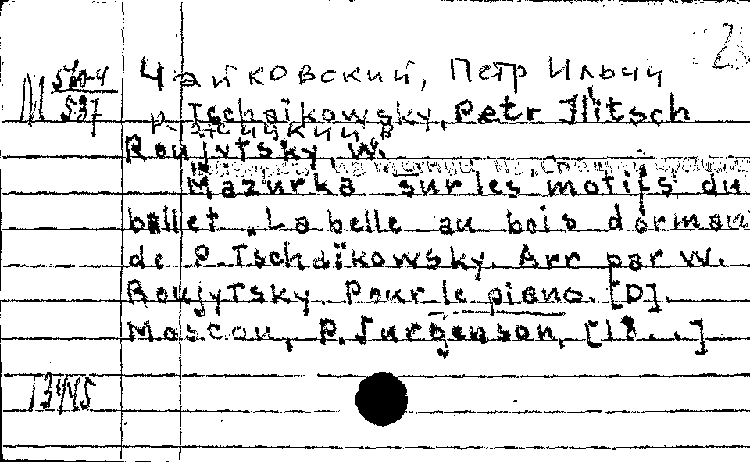 Чайковский, Петр Ильич
M
Tschaïkowsky, Petr Ilitsch
Roujytsky, W.
Mazurka sur les motifs du
ballet „La belle au bois dorman
de P. Tschaïkowsky. Arr par W.
Roujytsky. Pour le piano. [D].
Moscou, P. Jurgenson, [18...]